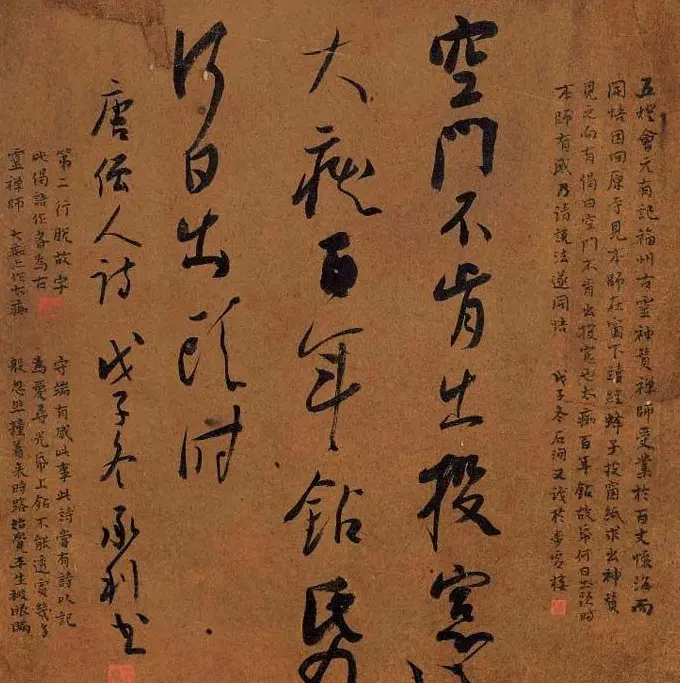 五燈會元有記福州古靈神贊禪師受業於百丈懷海而
開悟因回原寺見本師在窗下讀經蜂子投窗紙求出神贊
見之而有偈曰空門不肯出投窗也太痴百年鉆故帋何日出頭時
本師有感乃請說法遂開悟 戊子冬石河又識於
空門不肯出投窗
大痴百年鉆
何日出頭時
唐僧人詩 戊子冬承利書
第二行脫故字
此偈語作者為古
靈禪師 大痴亦作太痴
守端有感此事此詩嘗有詩以記
為愛尋光帋上鉆不能透處幾多
般忽然撞着來時路始覺平生被眼瞞